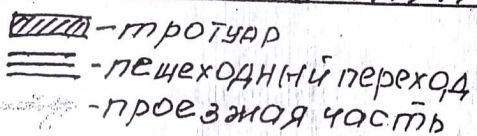 -тротуар
-пешеходный переход
-проезжая часть